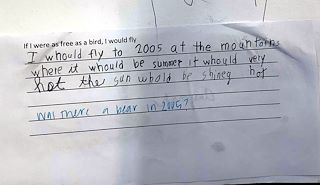 If I were as free as a bird, I would fly
I whould fly to 2005 at the mountains
where it whould be summer it whould very
hot the sun whould be shineg hot
was there a bear in 2005?